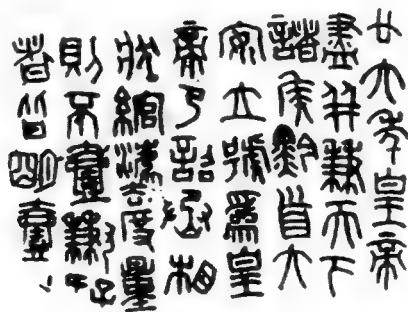 廿六年皇帝
盡并兼天下
諸侯黔首大
安立號爲皇
帝乃詔丞相
狀綰灋度量
則不壹歉疑
者皆明壹